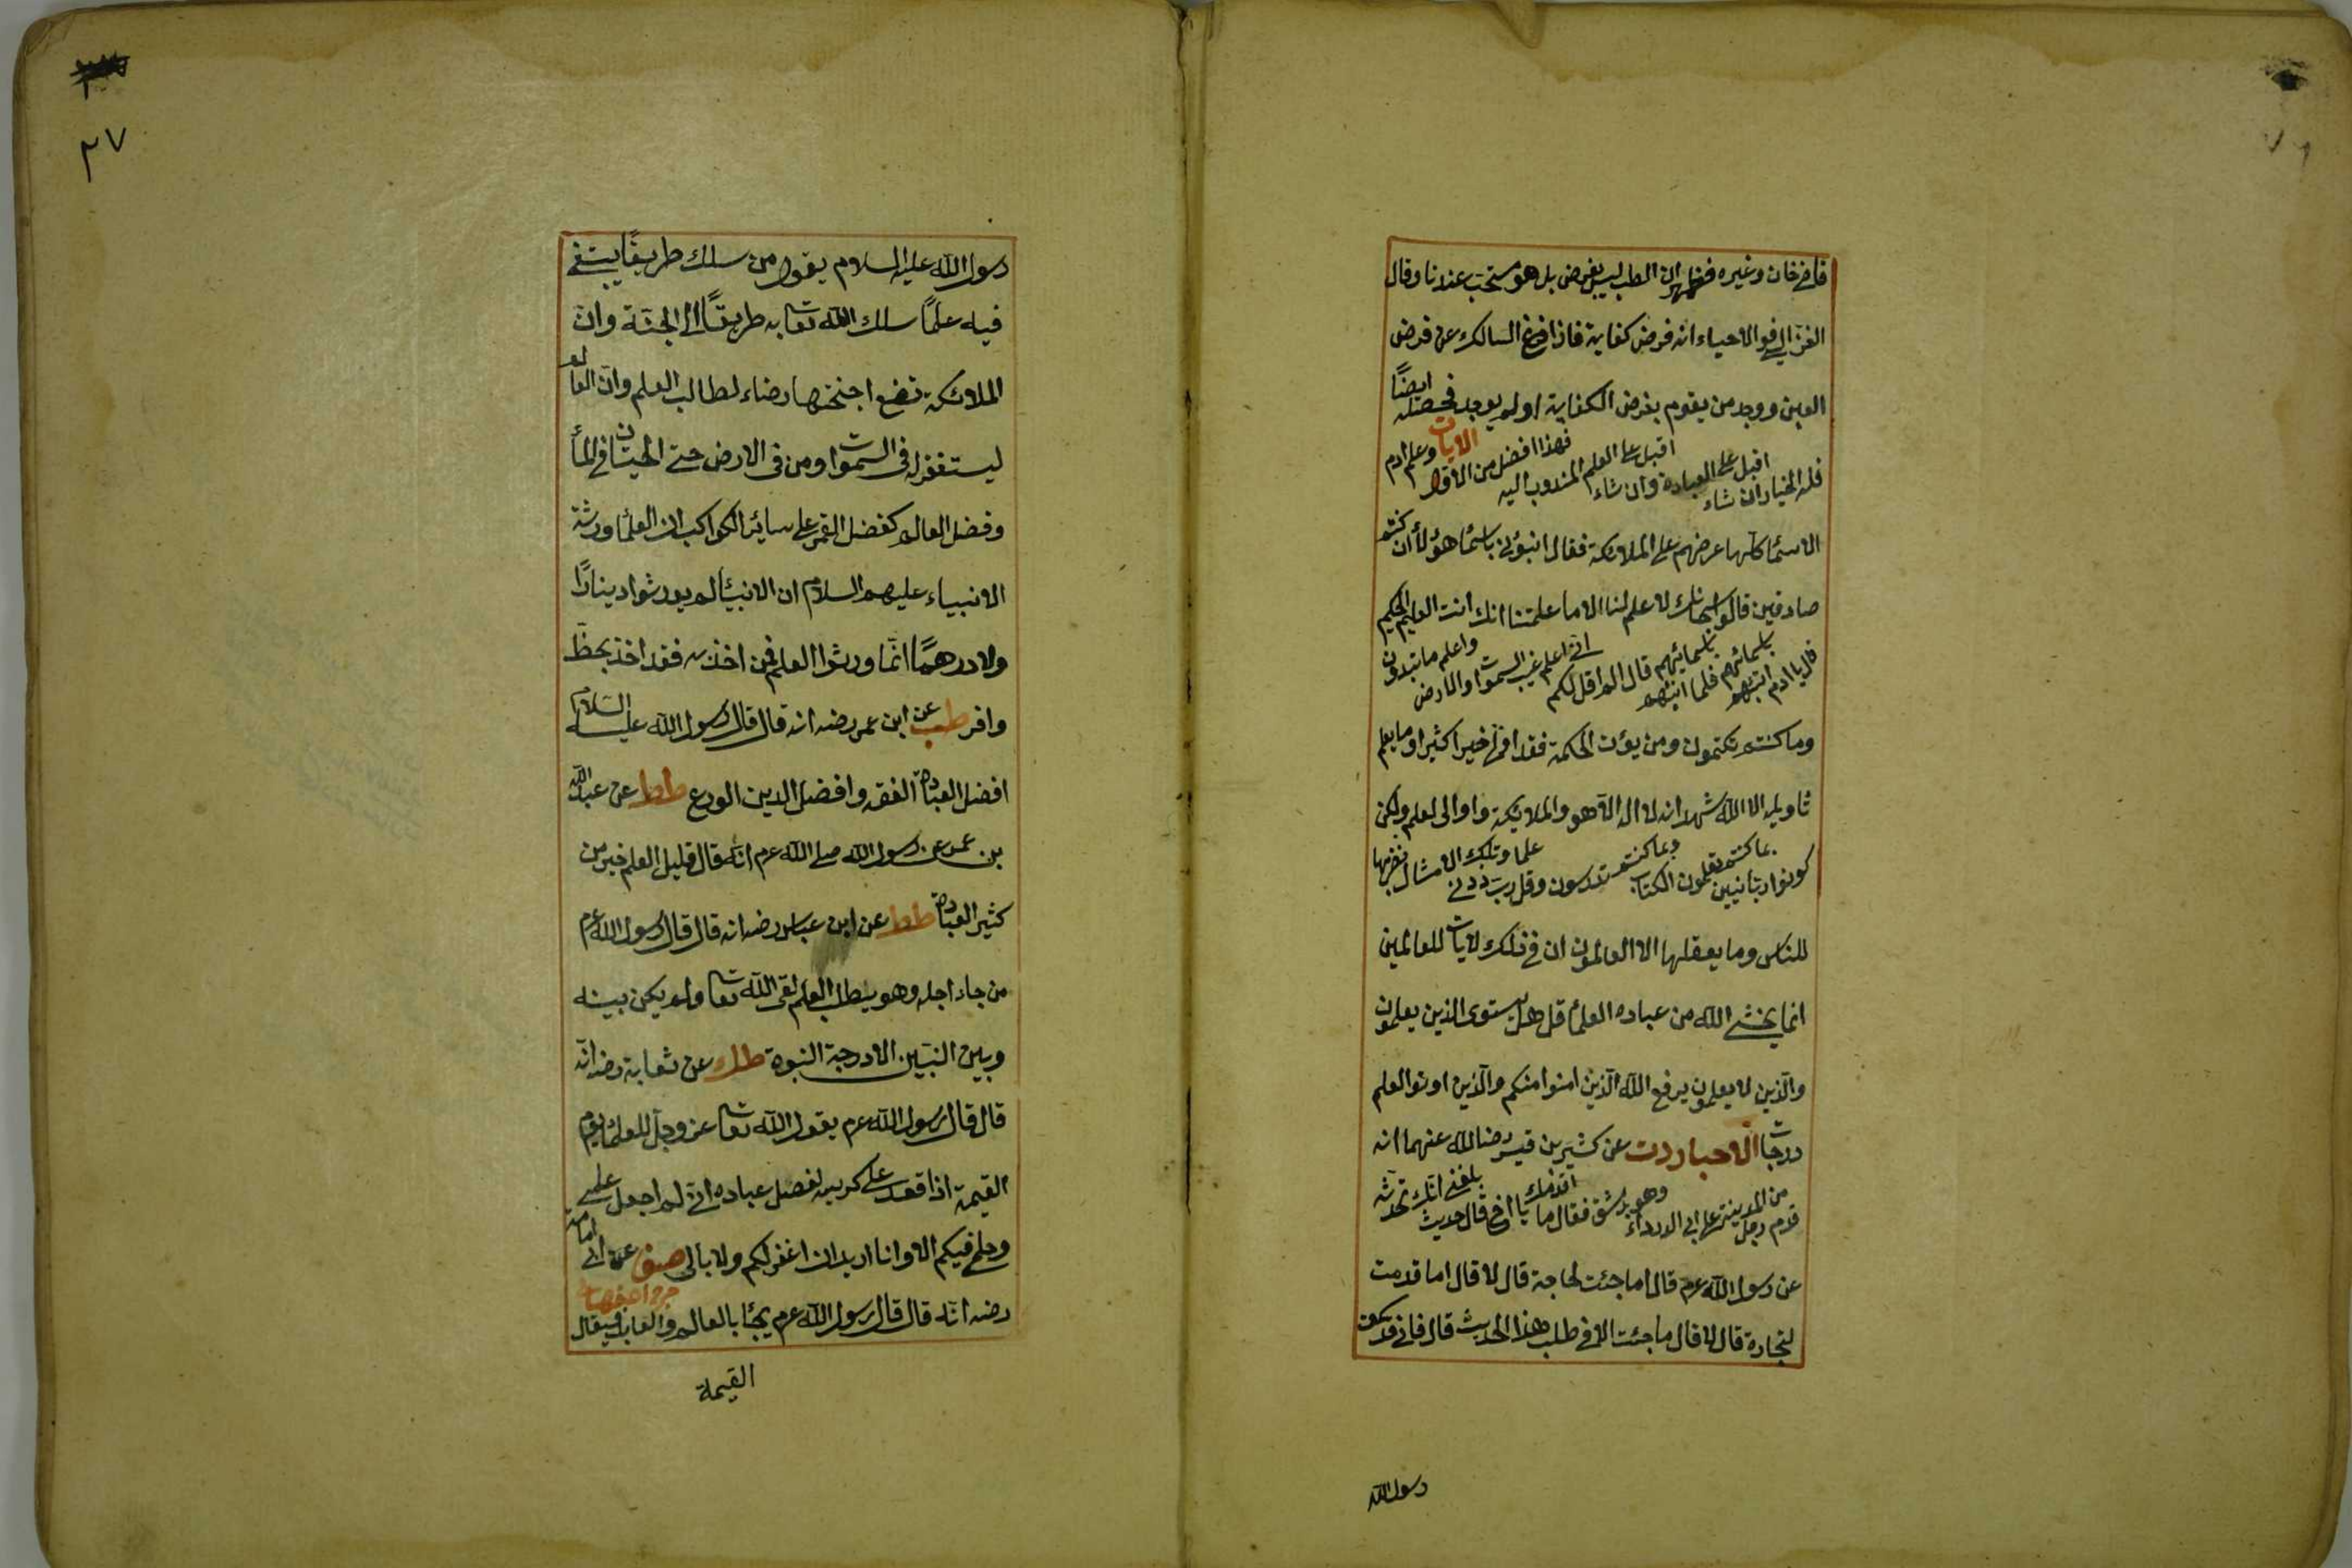 قاضيخان وغيره فظهر ان الطب ليس بفرض بل هو مستحب عندنا وقال
الغزالي في الاحياء انه فرض كفاية فاذا فرغ السالك عن فرض
العين ووجد من يقوم بفرض الكفاية او لم يوجد فحصله ايضًا
فله الخيار ان شاء اقبل على العبادة وان شاء اقبل على العلم المندوب اليه فهذا افضل من الاول الايات وعلم ادم
الاسمٔا كلها عرضهم على الملائكة فقال انبؤني باسمٔا هؤلأ ان كنتم
صادقين قالوا سبحانك لا علم لنا الا ما علمتنا انك انت العليم الحكيم
قال يا ادم انبئهم باسمائهم فلما انبئهم باسمائهم قال الم اقل لكم اني اعلم غيب السموات والارض واعلم ما تبدون
وما كنتم تكتمون ومن يؤت الحكمة فقد اوتي خيرا كثيرا وما يعلم
تاويله الا الله شهد انه لا اله الا هو والملائكة واوالى لعلم ولكن
كونوا ربانيين بما كنتم تعلمون الكتاب وبما كنتم تدرسون وقل رب زدني علما وتلك الامثال نضربها
للناس وما يعقلها الا العالمون ان في ذلك لايات للعالمين
انما يخشى الله من عباده العلمٔا قل هل يستوى الذين يعلمون
والذين لا يعلمون يرفع الله الذين امنوا منكم والذين اوتوا العلم
درجات الاحبار دت عن كثير بن قيس رضى الله عنهما انه
قدم رجل من المدينة على ابي الدرداء وهو بدمشق فقال ما اقدمك يا اخي قال حديث بلغني انك تحدثه
عن رسول الله عرم قال اما جئت لحاجة قال لا قال اما قدمت
لتجارة قال لا قال ما جئت الا في طلب هذا الحديث قال فاني قد سمعت
رسول الله
٣٧
رسول الله عليه السلام يقول من سلك طريقًا يبتغي
فيه علمًا سلك الله تعا به طريقًا الى الجنة وان
الملائكة تضع اجنحتها رضاء لطالب العلم وان العالم
ليستغفر له من في السموات ومن في الارض حتى الحيتان في المأ
وفضل العالم كفضل القمر على سائر الكواكب ان العلمٔا ورثة
الانبياء عليهم السلام ان الانبئا لم يورثوا دينارًا
ولا درهمًا انما ورثوا العلم فمن اخذ به فقد اخذ بحظ
وافر طب عن ابن عمر رضه انه قال قال رسول الله عليه السلام
افضل العبادة الفقه وافضل الدين الورع طط عن عبد الله
بن عمر عن رسول الله صلى الله عرم انه قال قليل العلم خير من
كثير العبادة طط عن ابن عباس رضه انه قال قال رسول الله عرم
من جاء اجله وهو يطلب العلم لقى الله تعا ولم يكن بينه
وبين النبيين الا درجة النبوة طك عن ثعابة رضه انه
قال قال رسول الله عرم يقول الله تعا عز وجل للعلمٔا يوم
القيمة اذا قعد على كرسيه لفصل عباده اني لم اجعل علمي
وحلمي فيكم الا وانا اريد ان اغفر لكم ولا ابالى صف عن ابى امامة
رضه انه قال قال رسول الله عرم يجٔا بالعالم والعابد فيقال
القيمة